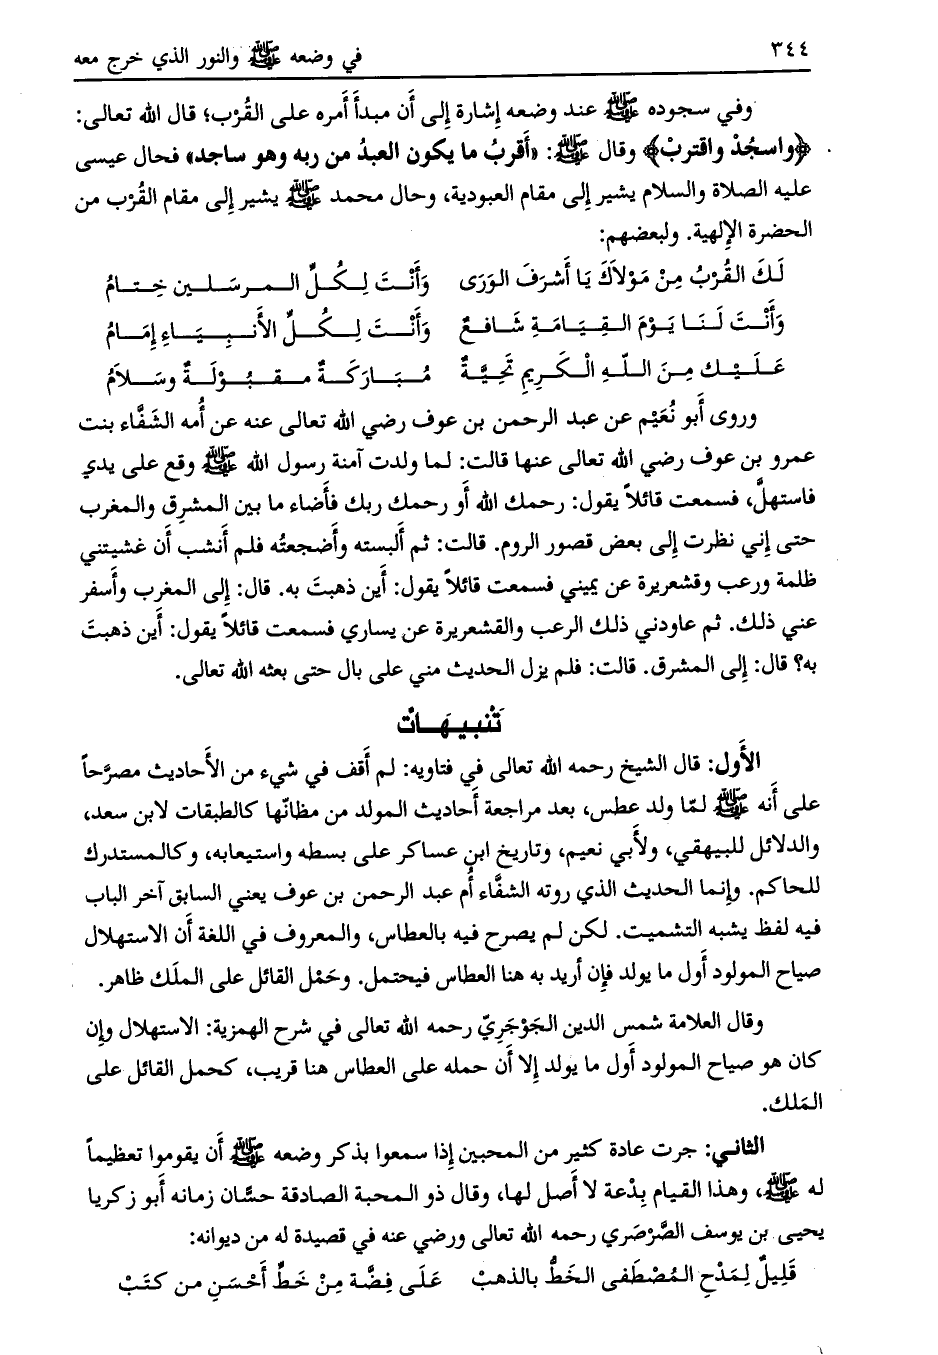 ٣٤٤ في وضعه ﷺ والنور الذي خرج معه
وفي سجوده ﷺ عند وضعه إشارة إلى أن مبدأ أمره على القُرْب؛ قال الله تعالى:
﴿واسجُدْ واقتربْ﴾ وقال ﷺ: «أقربُ ما يكون العبدُ من ربه وهو ساجد» فحال عيسى
عليه الصلاة والسلام يشير إلى مقام العبودية، وحال محمد ﷺ يشير إلى مقام القُرْب من
الحضرة الإلهية. ولبعضهم:
لَكَ القُرْبُ مِنْ مَوْلاَكَ يَا أَشرَفَ الوَرَى وَأَنْتَ لِكُلِّ المرسَلين خِتامُ
وَأَنْتَ لَنَا يَوْمَ القِيَامَةِ شَافعٌ وَأَنْتَ لِكُلِّ الأَنبِيَاءِ إِمَامُ
عَلَيْكَ مِنَ اللّهِ الْكَرِيمِ تَحِيَّةٌ مُبَارَكَةٌ مقبُوْلَةٌ وسَلاَمُ
وروى أبو نُعَيْم عن عبد الرحمن بن عوف رضي الله تعالى عنه عن أُمه الشفَّاء بنت
عمرو بن عوف رضي الله تعالى عنها قالت: لما ولدت آمنة رسول الله ﷺ وقع على يدي
فاستهلَّ، فسمعت قائلاً يقول: رحمك الله أو رحمك ربك فأضاء ما بين المشرِق والمغرب
حتى إني نظرت إلى بعض قصور الروم. قالت: ثم ألبسته وأضجعتُه فلم أنشب أن غشيتني
ظلمة ورعب وقشعريرة عن يميني فسمعت قائلاً يقول: أين ذهبتَ به. قال: إلى المغرب وأسفر
عني ذلك. ثم عاودني ذلك الرعب والقشعريرة عن يساري فسمعت قائلاً يقول: أين ذهبتَ
به؟ قال: إلى المشرق. قالت: فلم يزل الحديث مني على بال حتى بعثه الله تعالى.
تَنبِيهَاتٌ
الأَول: قال الشيخ رحمه الله تعالى في فتاويه: لم أقف في شيء من الأحاديث مصرَّحاً
على أنه ﷺ لمّا ولد عطس، بعد مراجعة أحاديث المولد من مظانّها كالطبقات لابن سعد،
والدلائل للبيهقي، ولأبي نعيم، وتاريخ ابن عساكر على بسطه واستيعابه، وكالمستدرك
للحاكم. وإنما الحديث الذي روته الشفَّاء أُم عبد الرحمن بن عوف يعني السابق آخر الباب
فيه لفظ يشبه التشميت. لكن لم يصرح فيه بالعطاس، والمعروف في اللغة أن الاستهلال
صياح المولود أول ما يولد فإن أريد به هنا العطاس فيحتمل. وحَمْل القائل على الملَك ظاهر.
وقال العلامة شمس الدين الجَوْجَرِيّ رحمه الله تعالى في شرح الهمزية: الاستهلال وإن
كان هو صياح المولود أول ما يولد إلا أن حمله على العطاس هنا قريب، كحمل القائل على
المَلك.
الثاني: جرت عادة كثير من المحبين إذا سمعوا بذكر وضعه ﷺ أن يقوموا تعظيماً
له ﷺ، وهذا القيام بِدْعة لا أصل لها، وقال ذو المحبة الصادقة حسَّان زمانه أبو زكريا
يحيى بن يوسف الصَّرْصَري رحمه الله تعالى ورضي عنه في قصيدة له من ديوانه:
قَلِيلٌ لِمَدْحِ المُصْطَفى الخَطُّ بالذهبْ عَلَى فِضَّة مِنْ خَطِّ أَحْسَنِ من كتَبْ